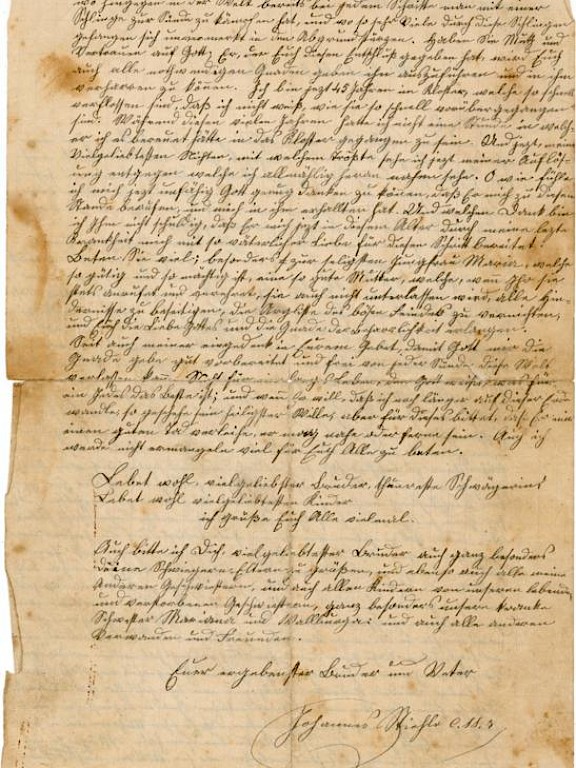 wo hingegen in der Welt bereits bei jedem Schritte man mit einer
Schlinge zur Sünde zu kämpfen hat, und wo so sehr Viele durch diese Schlingen
gefangen sich unvermerkt in den Abgrund stürzen. Haben Sie Muth und
Vertrauen auf Gott; Er, der Euch diesen Entschluß gegeben hat, wird Euch
auch alle nothwendigen Gnaden geben ihn auszuführen und in ihm
verharren zu können. Ich bin jezt 45 Jahren im Kloster, welche so schnell
verflossen sind, daß ich nicht weiß, wie sie so schnell vorüber gegangen
sind. Während diesen vielen Jahren hatte ich nicht eine Stunde in welch-
er ich es bereuet hätte in das Kloster gegangen zu sein. Und jezt, meine
Vielgeliebtesten Nichten, mit welchem Troste sehe ich jezt meiner Auflös-
ung entgegen welche ich allmählig heran nahen sehe. O wie fühle
ich mich jezt unfähig Gott genug danken zu können, daß Er mich zu diesem
Stande berufen, und mich in ihm erhalten hat. Und welchen Dank bin
ich Ihm nicht schuldig, daß Er mich jezt in diesem Alter durch meine lezte
Krankheit mich mit so väterlicher Liebe für diesen Schritt bereitet!
Beten Sie viel; besonders zur seligsten Jungfrau Maria, welche
so gütig und so mächtig ist, eine so gute Mutter, welche, wen Ihr sie
stets anrufet und verehret, sie auch nicht unterlassen wird, alle Hin-
dernisse zu beseitigen, die Arglist des bösen Feindes zu vernichten,
und Euch die Liebe Gottes und die Gnade der Beharrlichkeit erlangen.
Seit auch meiner eingedenk in Eurem Gebet, damit Gott mir die
Gnade gebe gut vorbereitet und frei von jeder Sünde diese Welt
verlassen kann. Nicht für ein langes Leben, den Gott weiß was für
ein Jedes das Beste ist; und wen Er will, daß ich noch länger auf dieser Erde
wandle, so geschehe sein heiligster Wille, aber für dieses bittet, daß Er mir
einen guten Tod verleihe, er mag nahe oder ferne sein. Auch ich
werde nicht ermangeln viel für Euch Alle zu beten.
Lebet wohl, vielgeliebtester Bruder, theuerste Schwägerin!
Lebet wohl vielgeliebtesten Kinder
ich grüße Euch Alle vielmal.
Auch bitte ich Dich, vielgeliebtester Bruder auch ganz besonders
deine Schwiegereltern zu grüßen, und ebenso auch alle meine
Anderen Geschwistern, und auch allen Kindern von unseren lebenden
und verstorbenen Geschwistern, ganz besonders unsere kranke
Schwester Mariana und Wallburga: und auch alle anderen
Verwanden und Freunden.
Euer ergebenster Bruder und Vetter
Johannes Stiehle C.SS.R